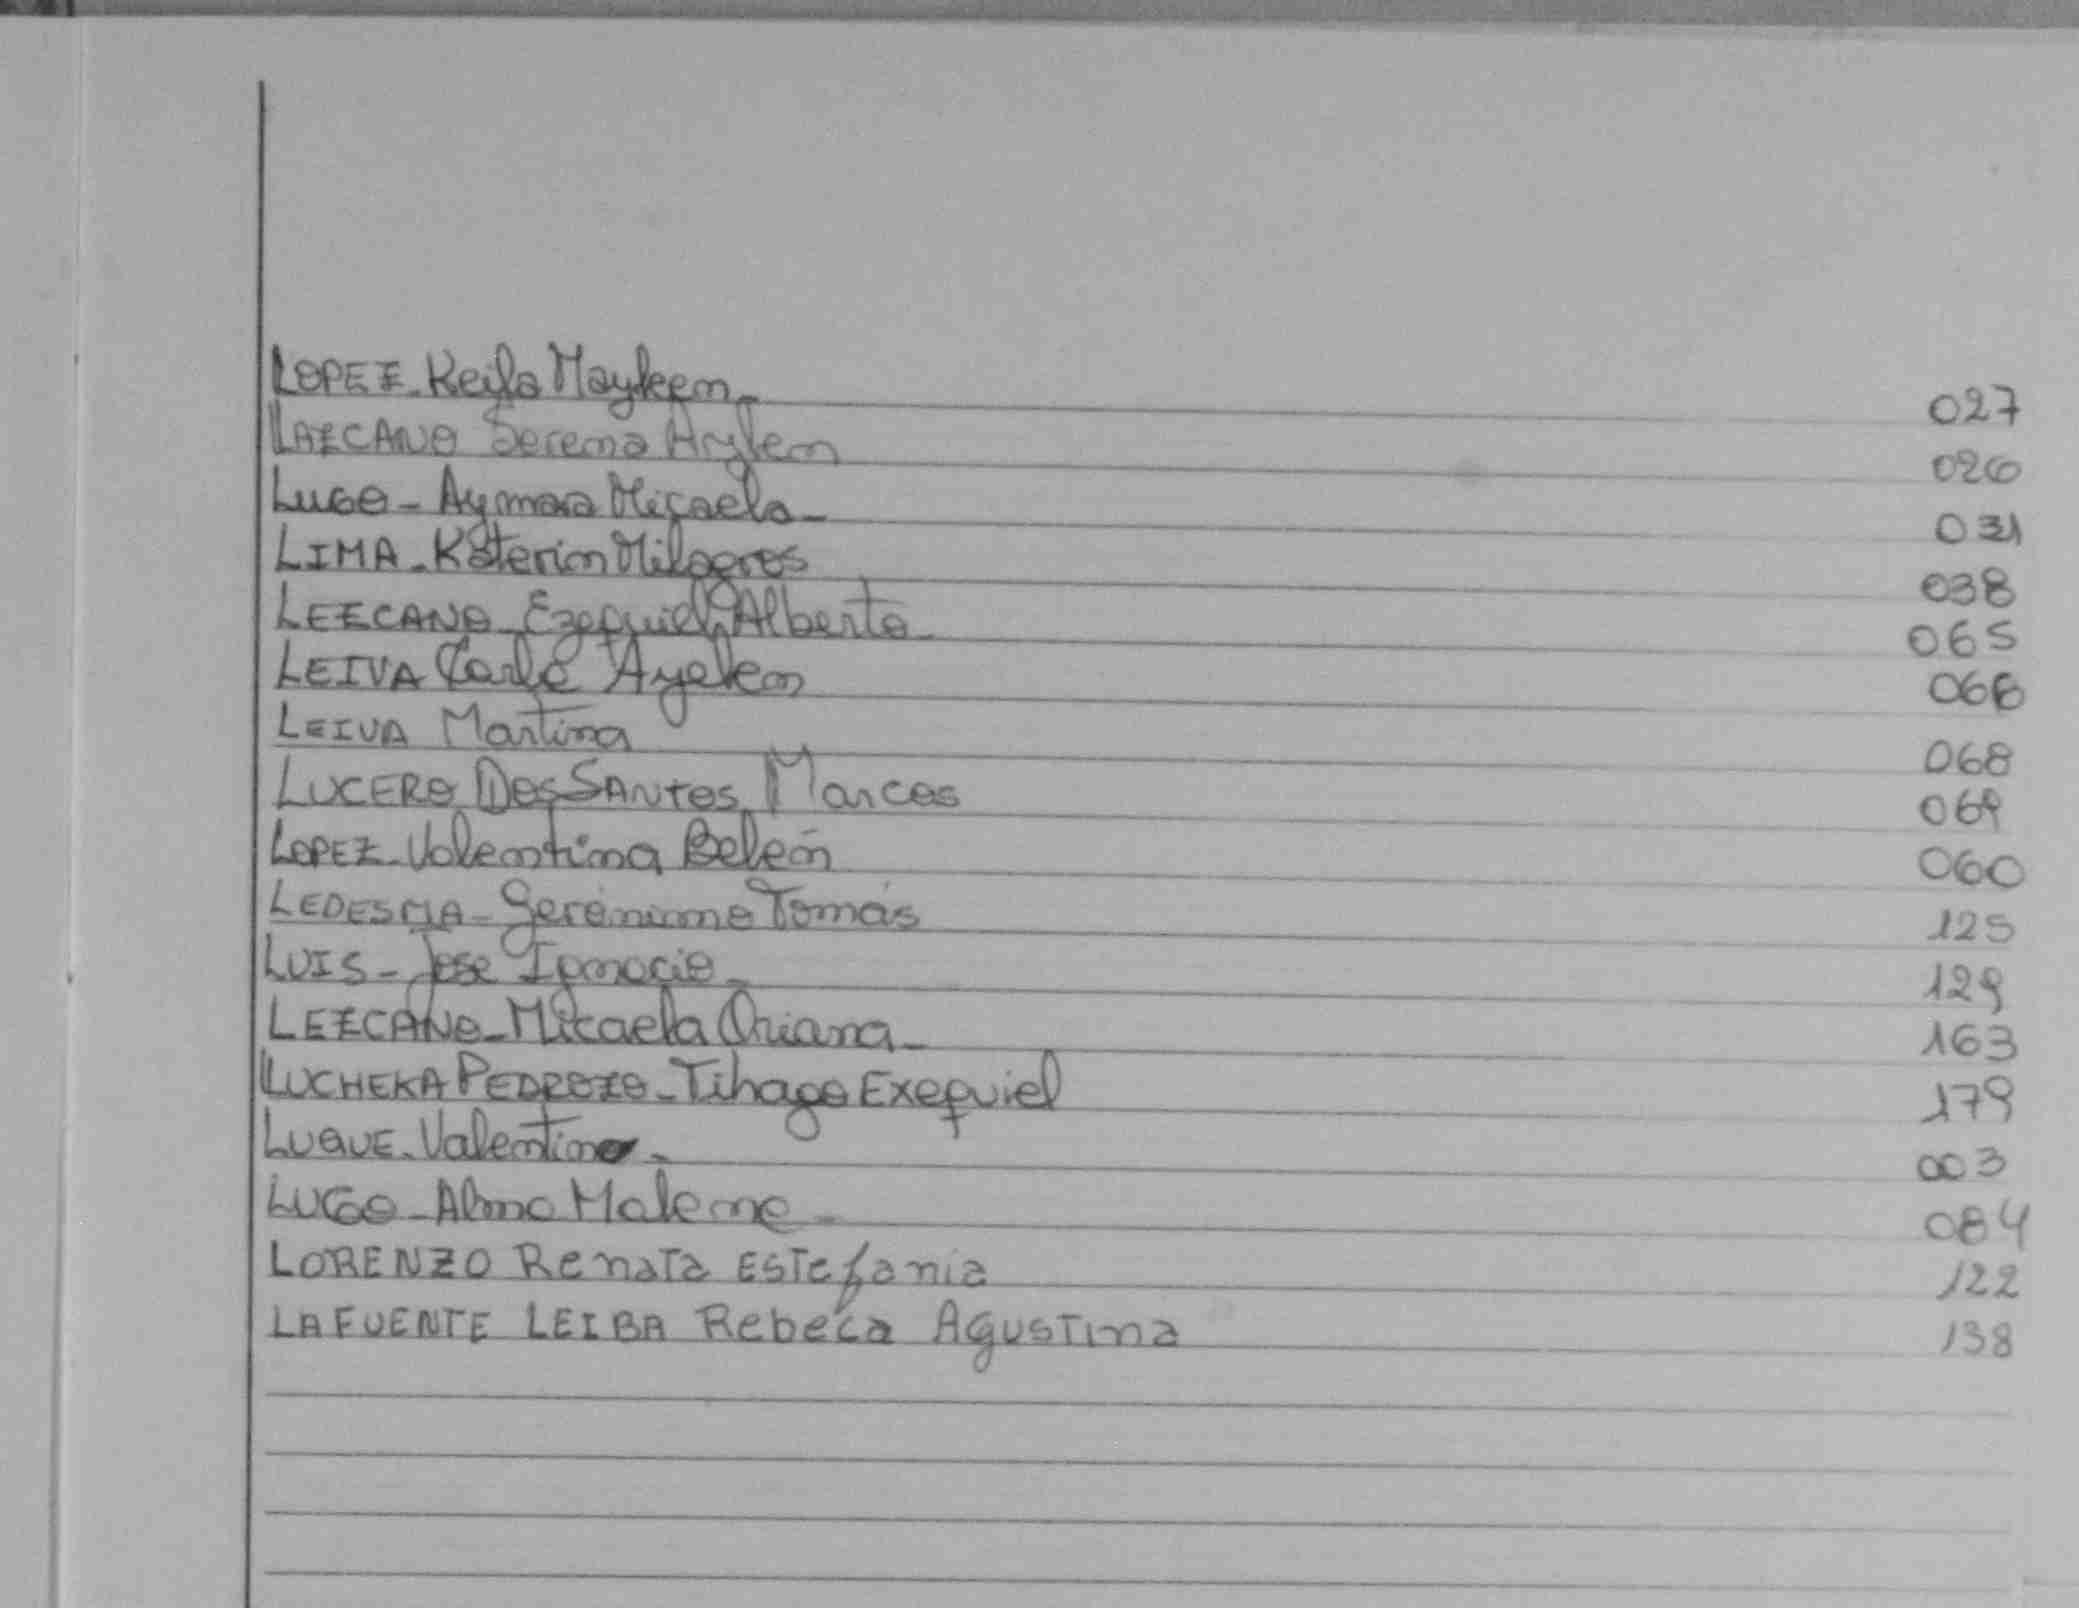 LOPEZ - Keila Mayleem - 027
LAZCANO Serena Aylen 026
LUGO - Aymara Micaela - 031
LIMA - Katerin Milagros 038
LEZCANO Ezequiel Alberto - 065
LEIVA Carla Ayelen 066
LEIVA Martina 068
LUCERO DOS SANTOS Marcos 069
LOPEZ - Valentina Belén 060
LEDESMA - Gerónimo Tomás 125
LUIS - Jose Ignacio - 129
LEZCANO - Micaela Oriana - 163
LUCHEKA PEDROZO - Tihago Exequiel 179
LUQUE - Valentino - 003
LUGO - Alma Malena - 084
LORENZO Renata Estefania 122
LAFUENTE LEIBA Rebeca Agustina 138